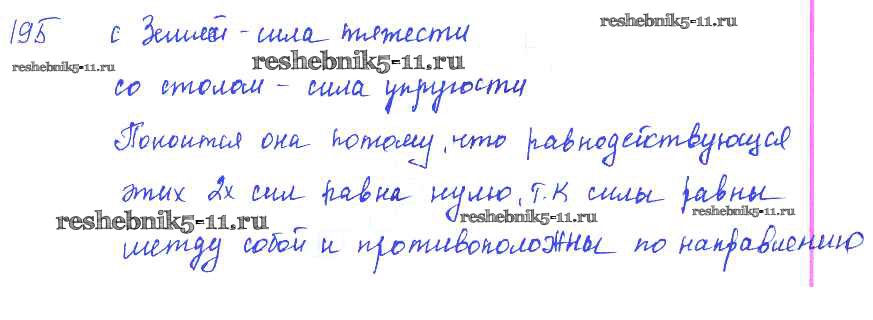 195 с Землёй - сила тяжести
reshebnik5-11.ru
reshebnik5-11.ru
reshebnik5-11.ru
со столом - сила упругости
Покоится она потому, что равнодействующая
этих 2х сил равна нулю, т.к силы равны
reshebnik5-11.ru
reshebnik5-11.ru
reshebnik5-11.ru
между собой и противоположны по направлению